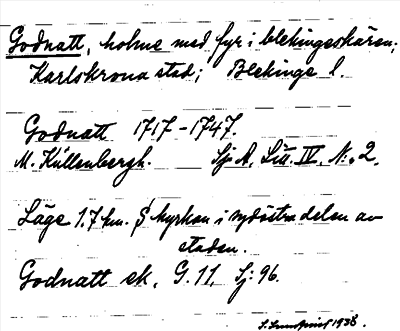 Godnatt, holme med fyr i blekingeskären;
Karlskrona stad; Blekinge l.
Godnatt 1717-1747.
M. Küllenbergh. Sj A, Litt. IV, N:o 2.
Läge 1.7 km. S kyrkan i sydöstra delen av
staden.
Godnatt ek. G. 11, Sj: 96.
1938.